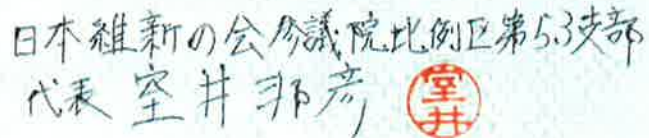 日本維新の会参議院比例区第53支部
代表 室井邦彦 室井